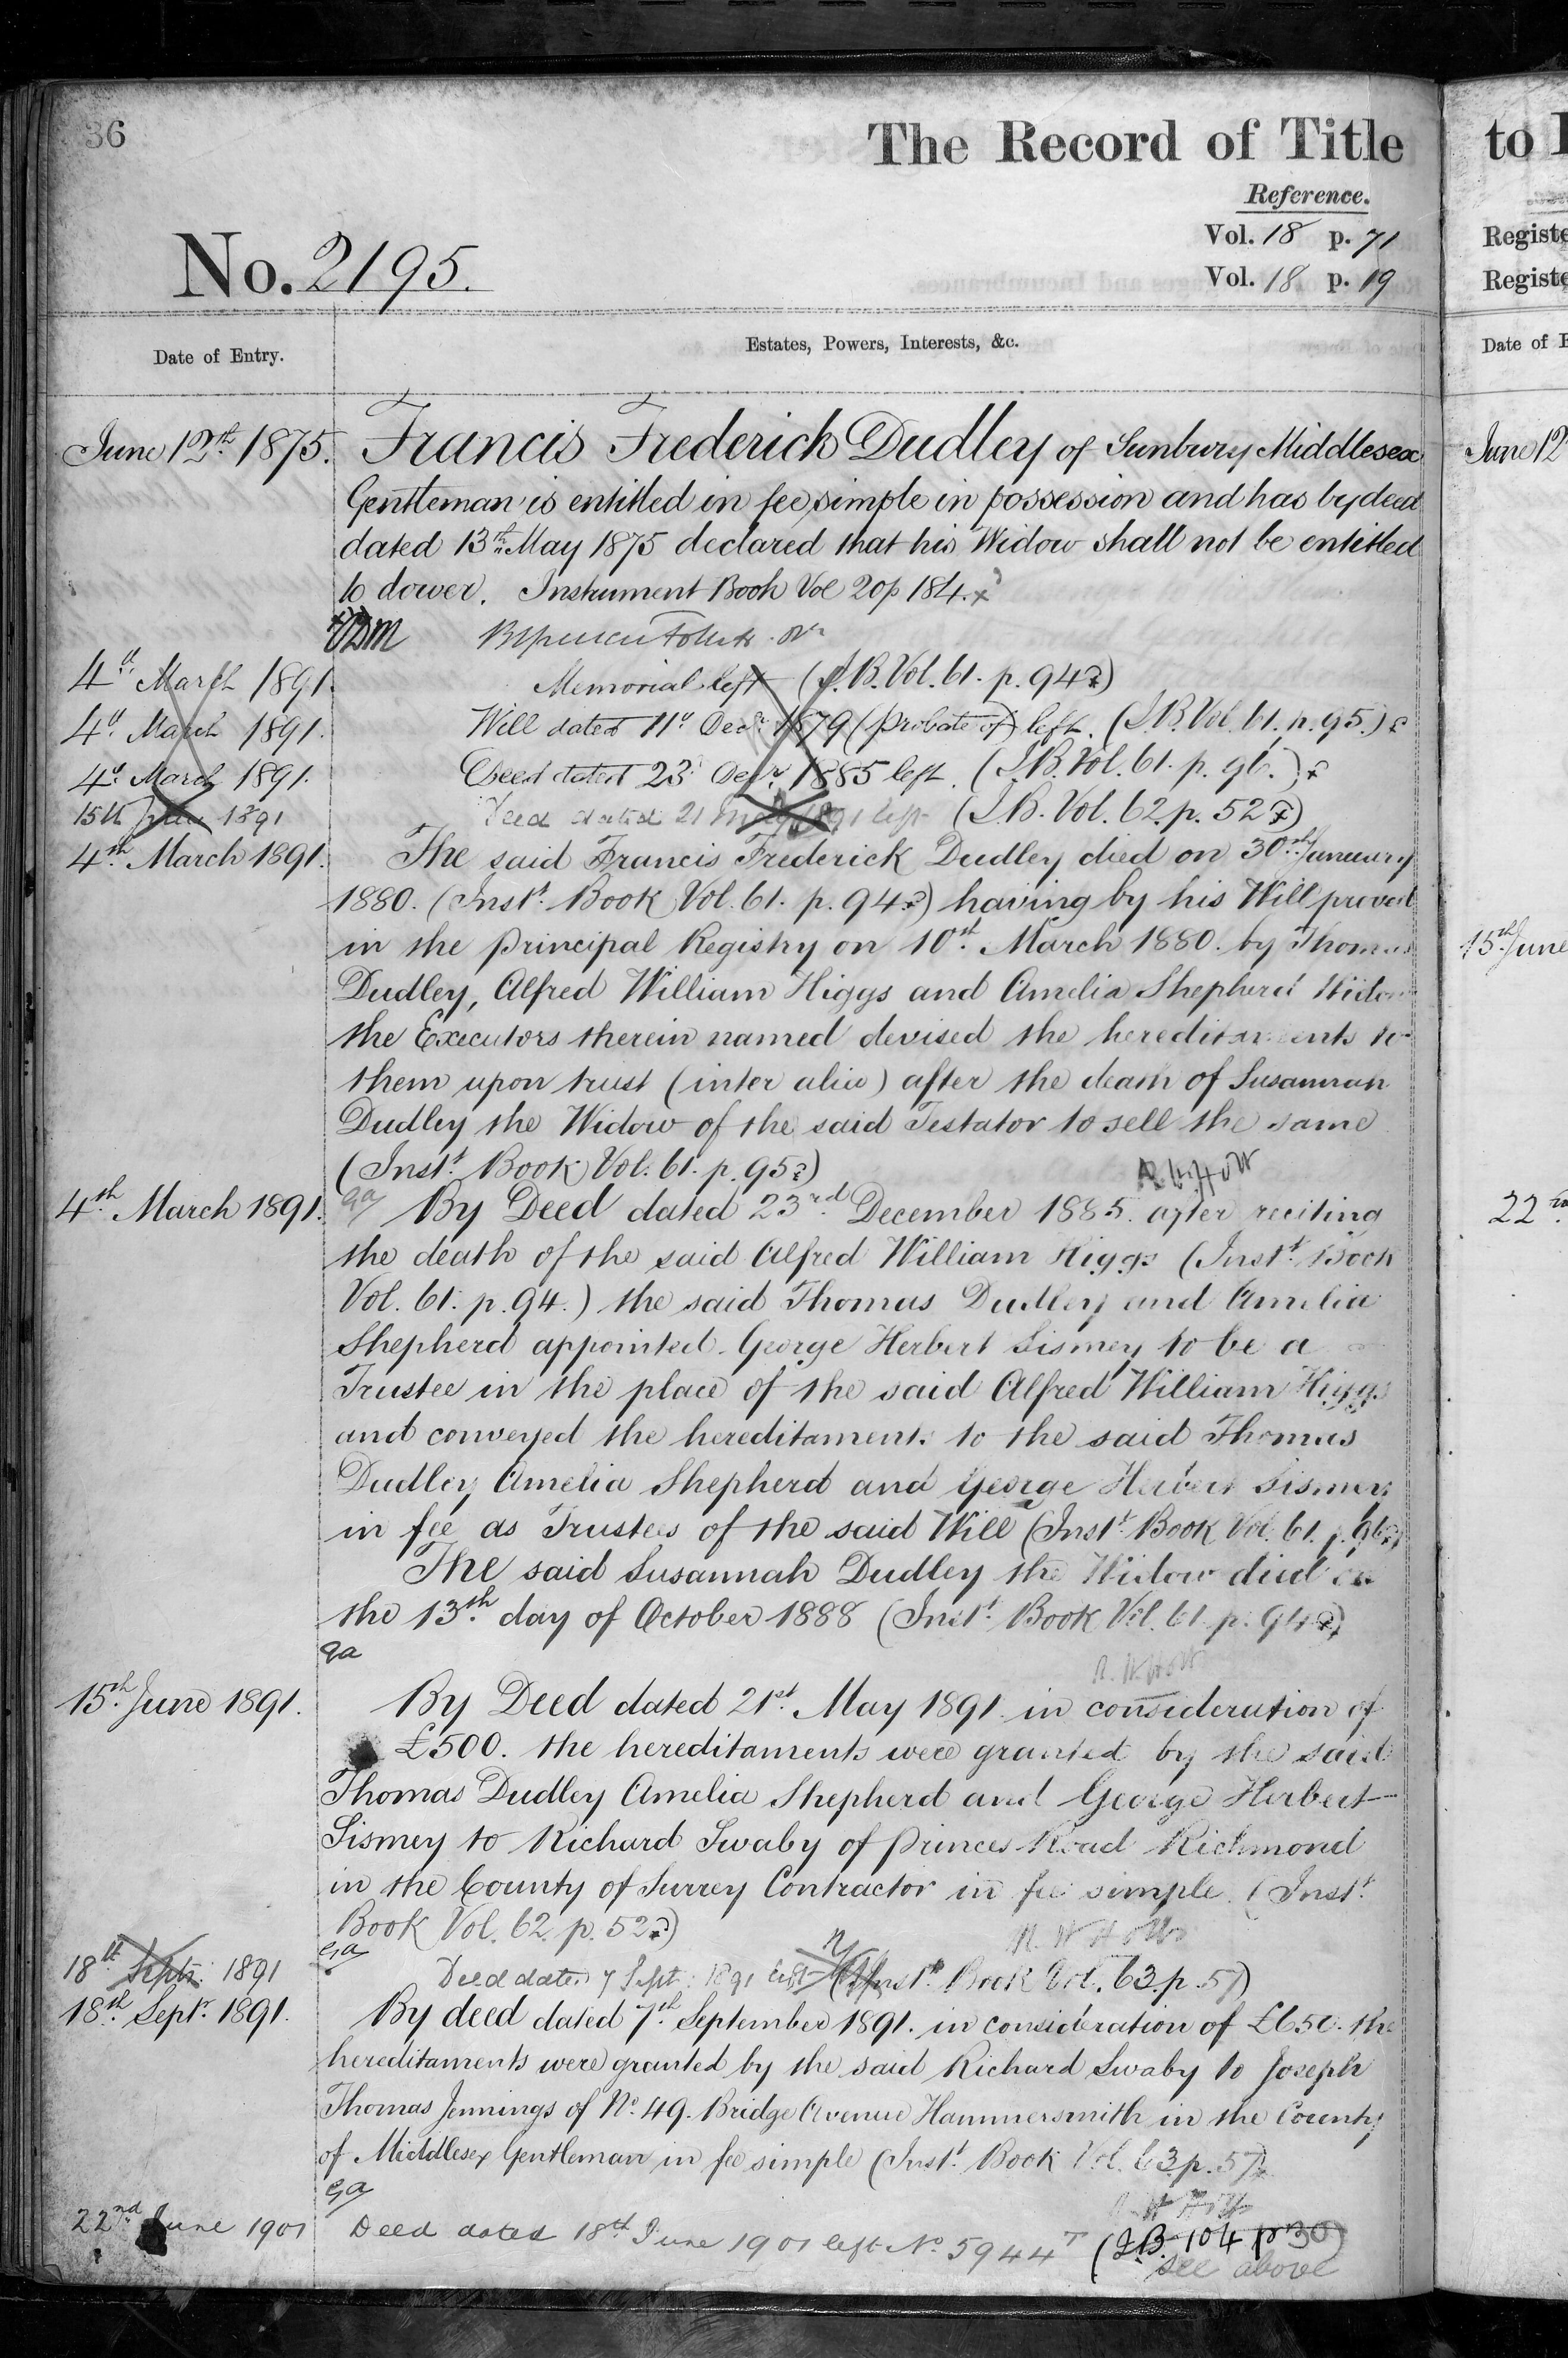 36
The Record of Title
Reference.
Vol. 18 p. 71
No. 2195.
Vol. 18 p. 19
Date of Entry.
Estates, Powers, Interests, &c.
June 12th 1875. Francis Frederick Dudley of Sunbury Middlesex
Gentleman is entitled in fee simple in possession and has by deed
dated 13th May 1875 declared that his Widow shall not be entitled
to dower. Instrument Book Vol 20 p 184.
4th March 1891. Memorial left (I.B. Vol. 61. p. 94)
4th March 1891. Will dated 11th Decr 1879 (probate of) left. (I.B. Vol. 61. p. 95.)
4th March 1891. Deed dated 23d Decr 1885 left. (I.B. Vol. 61. p. 96.)
15th June 1891 Deed dated 21 May 1891 left (I.B. Vol. 62. p. 52)
4th March 1891. The said Francis Frederick Dudley died on 30th January
1880. (Inst. Book Vol. 61. p. 94) having by his Will proved
in the Principal Registry on 10th March 1880. by Thomas
Dudley, Alfred William Higgs and Amelia Shepherd Widow
the Executors therein named devised the hereditaments to
them upon trust (inter alia) after the death of Susannah
Dudley the Widow of the said Testator to sell the same
(Inst. Book Vol. 61. p. 95)
R. W. Hott
4th March 1891. By Deed dated 23rd December 1885. after reciting
the death of the said Alfred William Higgs (Inst. Book
Vol. 61. p. 94.) the said Thomas Dudley and Amelia
Shepherd appointed George Herbert Sismey to be a
Trustee in the place of the said Alfred William Higgs
and conveyed the hereditaments to the said Thomas
Dudley Amelia Shepherd and George Herbert Sismey
in fee as Trustees of the said Will (Inst. Book Vol. 61. p. 96)
The said Susannah Dudley the Widow died on
the 13th day of October 1888 (Inst. Book Vol. 61. p. 94)
15th June 1891. By Deed dated 21st May 1891. in consideration of
£500. the hereditaments were granted by the said
Thomas Dudley Amelia Shepherd and George Herbert
Sismey to Richard Swaby of Princes Road Richmond
in the County of Surrey Contractor in fee simple. (Inst.
Book Vol. 62. p. 52)
18th Sept. 1891 Deed dated 7 Sept. 1891 left (Inst. Book Vol. 63. p. 57)
18th Sept. 1891. By deed dated 7th September 1891. in consideration of £650. the
hereditaments were granted by the said Richard Swaby to Joseph
Thomas Jennings of No. 49. Bridge Avenue Hammersmith in the County
of Middlesex Gentleman in fee simple (Inst. Book Vol. 63. p. 57)
22nd June 1901 Deed dated 18th June 1901 left No. 5944 T (I.B. 104 p 30)
see above
to
Registe
Registe
Date of E
June 12
15th June
22nd